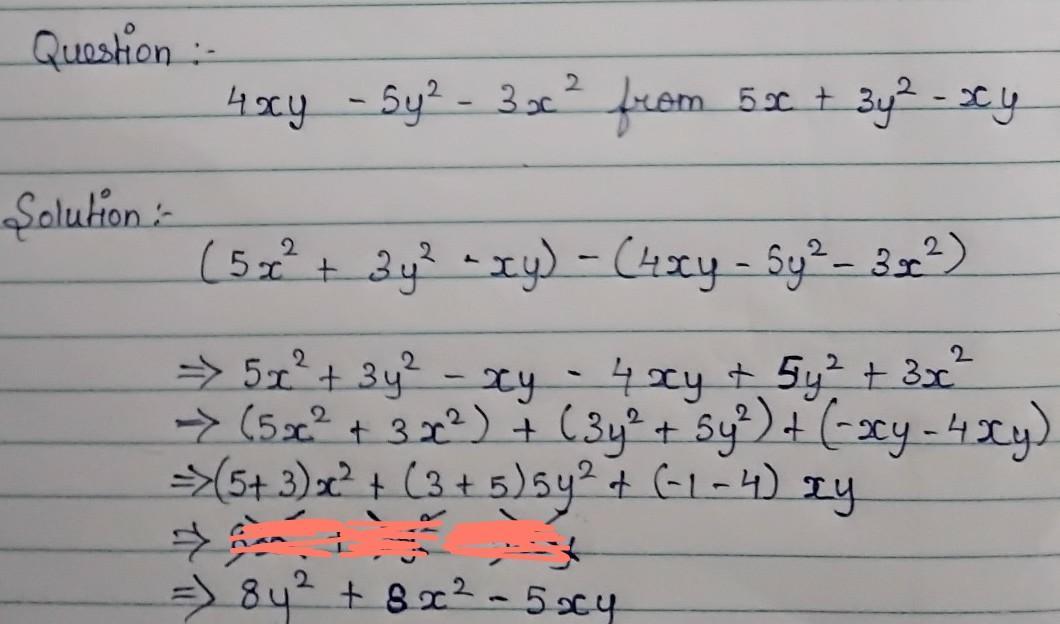 Question :-
4xy - 5y² - 3x² from 5x + 3y² - xy
Solution :-
(5x² + 3y² - xy) - (4xy - 5y² - 3x²)
⇒ 5x² + 3y² - xy - 4xy + 5y² + 3x²
→ (5x² + 3x²) + (3y² + 5y²) + (-xy - 4xy)
⇒ (5+3)x² + (3+5)5y² + (-1-4) xy
⇒
⇒ 8y² + 8x² - 5xy